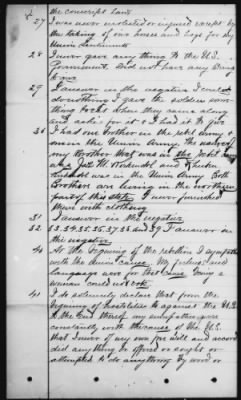 the conscript Law
27 I was never molested or injured except by
the taking of our horses and hogs for my
Union Sentiments
28 I never gave any thing to the U.S.
Government. did not have any thing
to give
29 I answer in the negative I could
do nothing I gave the soldiers some
thing to eat when they came along
and ask for it I had it to give
30 I had one Brother in the rebel Army &
one in the Union Army. The name of
my Brother that was in the rebel army
was Jas M
was in the Union Army Both
Brothers are living in the northern
part of this state. I never furnished
them with clothing
31 I answer in the negative
32, 33, 34, 35, 36, 37, 38 and 39 I answer in
the negative
40 At the beginning of the rebellion I sympathized
with the Union cause. My feelings and
language were for that cause being a
woman could not vote
41 I do solemnly declare that from the
beginning of hostilities to against the U.S.
to the end thereof my sympathies were
constantly with the cause of the U.S.
that I never of my own free will and accord
did any thing or offered or sought or
attempted to do anything by word or